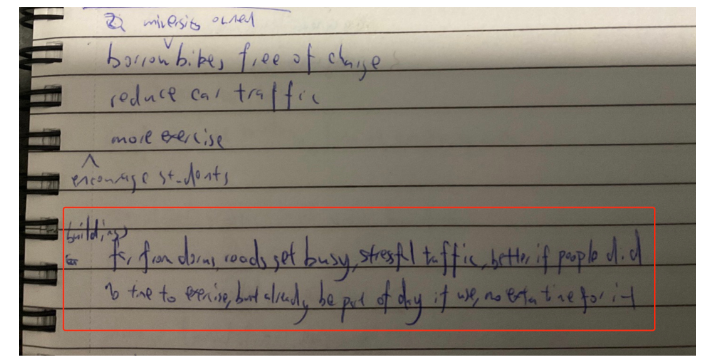 university owned
borrow bikes free of charge
reduce car traffic
more exercise
encourage students
buildings
far from dorms, roads get busy, stressful traffic, better if people did
time to exercise, but already be part of day if use, no extra time for it